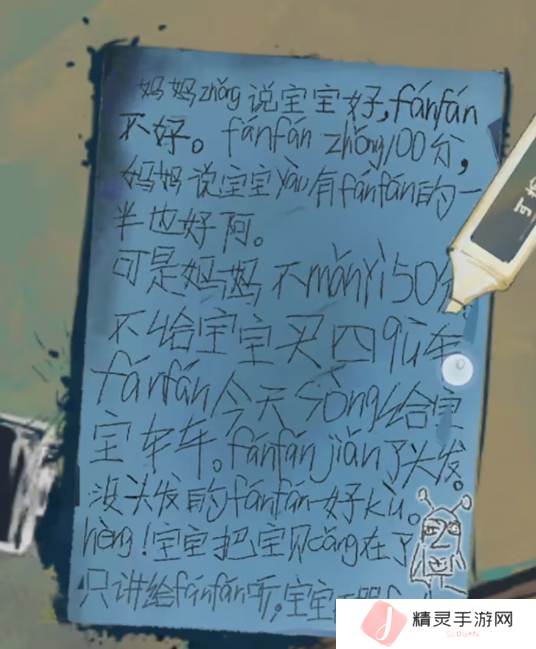 妈妈zhǒng说宝宝好,fánfán
不好。fánfán zhǒng100分,
妈妈说宝宝yàu有fánfán的一
半也好阿。
可是妈妈不mǎnyì50分
不给宝宝买四qū车
fánfán今天sòng给宝
宝车车。fánfán jiǎn了头发。
没头发的fánfán好kù。
hèng!宝宝把宝贝cáng在了
只讲给fánfán听,宝宝
精灵手游网
SLOGAN